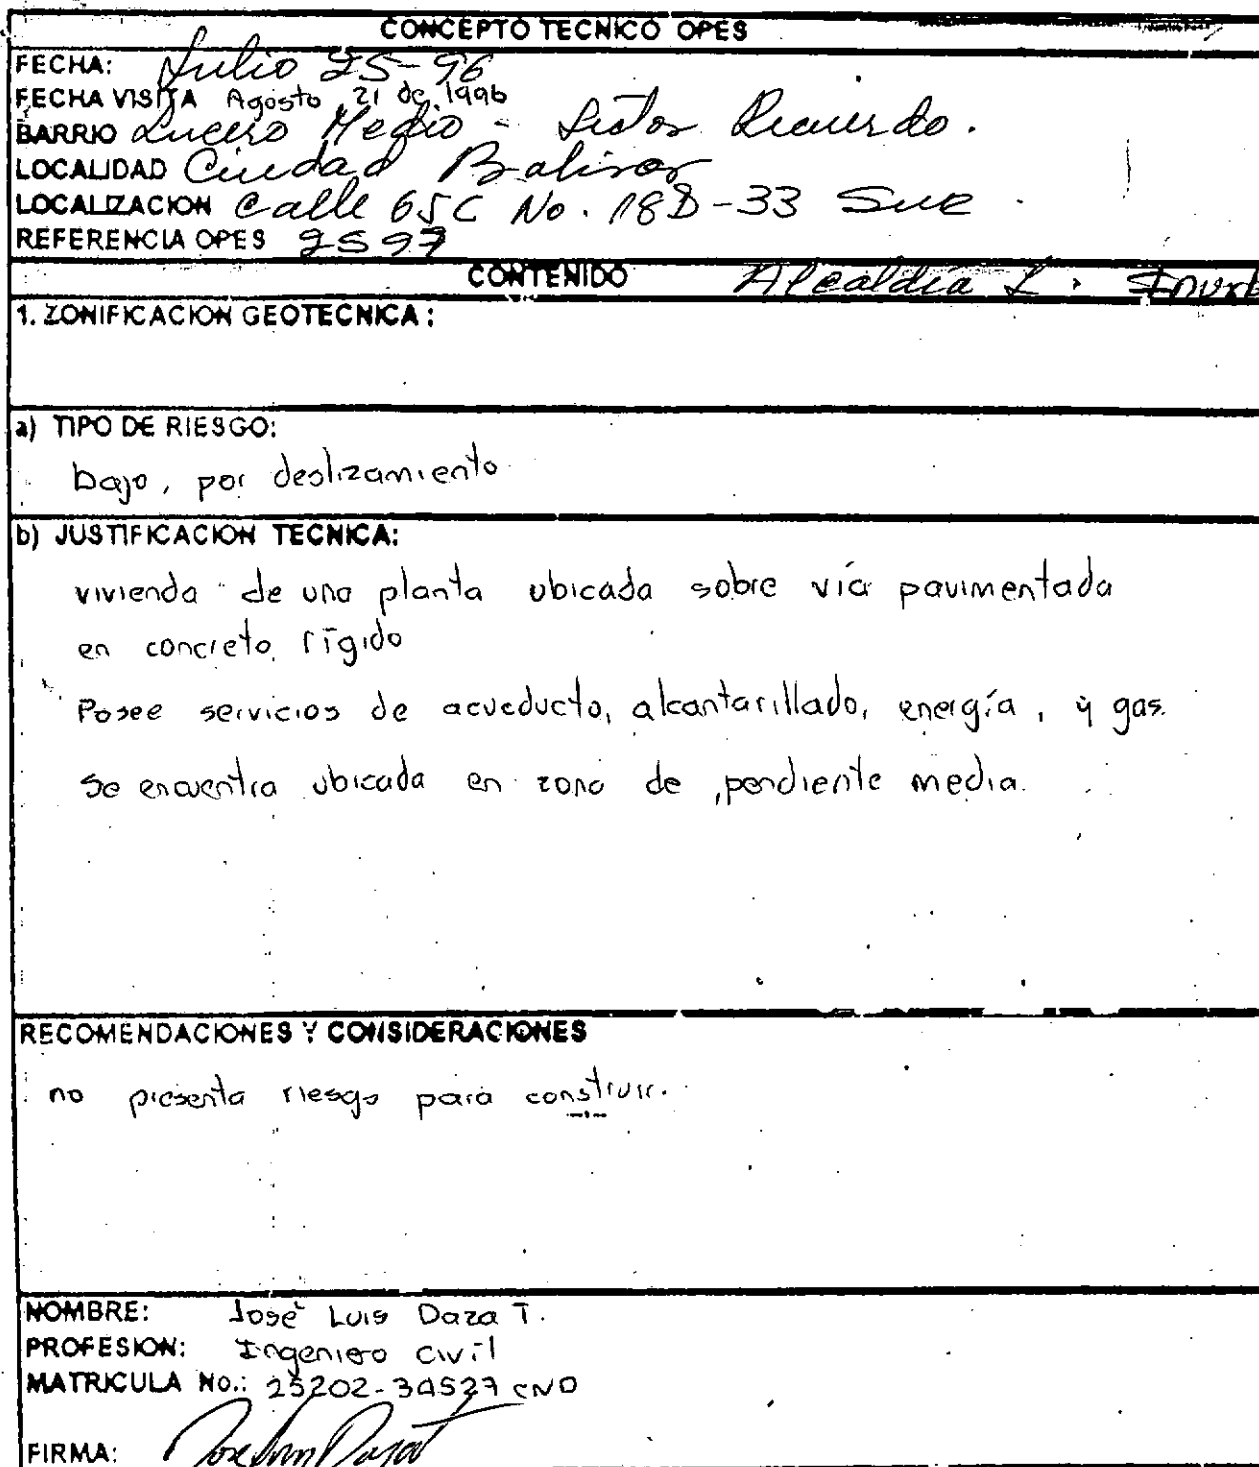 CONCEPTO TECNICO OPES
FECHA: Julio 25-96
FECHA VISITA Agosto 21 de 1996
BARRIO Lucero Medio - Sector Recuerdo.
LOCALIDAD Ciudad Bolivar
LOCALIZACION Calle 65C No. 18D-33 Sur
REFERENCIA OPES 2597
CONTENIDO Alcaldía L.
1. ZONIFICACION GEOTECNICA:
a) TIPO DE RIESGO:
bajo, por deslizamiento
b) JUSTIFICACION TECNICA:
vivienda de una planta ubicada sobre vía pavimentada
en concreto rígido
Posee servicios de acueducto, alcantarillado, energía, y gas.
se encuentra ubicada en zona de pendiente media.
RECOMENDACIONES Y CONSIDERACIONES
no presenta riesgo para construir.
NOMBRE: José Luis Daza T.
PROFESION: Ingeniero Civil
MATRICULA No.: 25202-34527 CND
FIRMA: